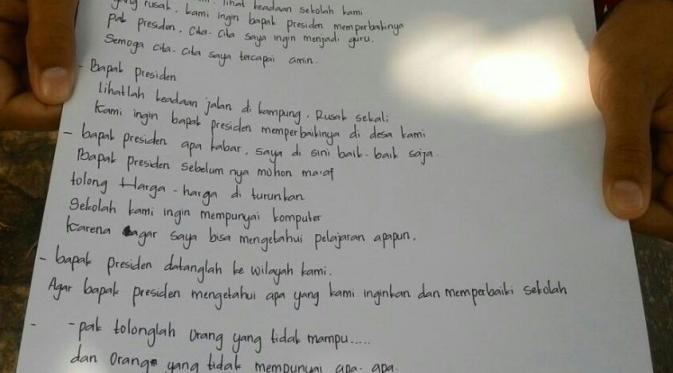 yang rusak. kami ingin bapak presiden memperbakinya
lihat keadaan sekolah kami
pak presiden. cita-cita saya ingin menjadi guru.
Semoga cita-cita saya tercapai amin.
- Bapak Presiden
Lihatlah keadaan jalan di kampung. Rusak sekali
Kami ingin bapak presiden memperbaikinya di desa kami
- bapak presiden apa kabar. saya di sini baik-baik saja.
Bapak presiden sebelum nya mohon ma'af
tolong Harga-harga di turunkan
Sekolah kami ingin mempunyai komputer
Karena agar saya bisa mengetahui pelajaran apapun.
- bapak presiden datanglah ke wilayah kami.
Agar bapak presiden mengetahui apa yang kami inginkan dan memperbaiki sekolah
- - pak tolonglah orang yang tidak mampu.....
dan orang yang tidak mempunyai apa-apa.